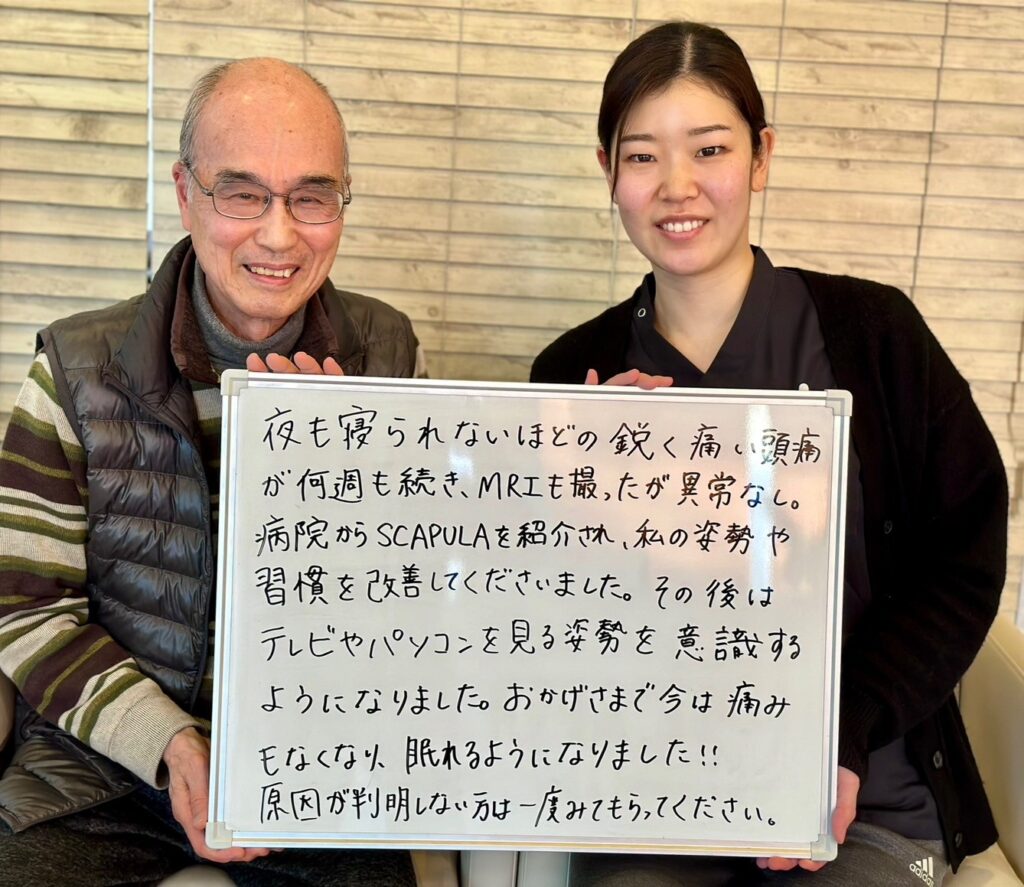 夜も寝られないほどの鋭く痛い頭痛
が何週も続き、MRIも撮ったが異常なし。
病院からSCAPULAを紹介され、私の姿勢や
習慣を改善してくださいました。その後は
テレビやパソコンを見る姿勢を意識する
ようになりました。おかげさまで今は痛み
もなくなり、眠れるようになりました!!
原因が判明しない方は一度みてもらってください。
adidas